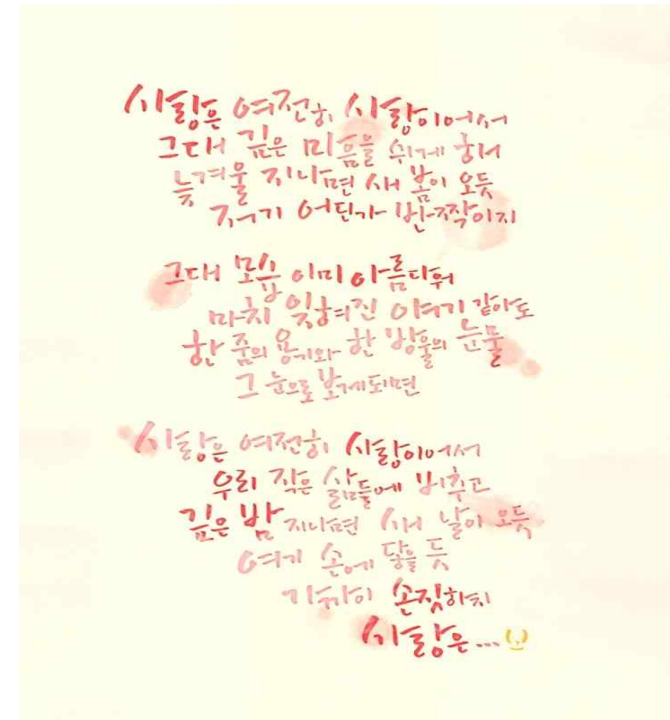 사랑은 여전히 사랑이어서
그대 깊은 마음을 쉬게 하네
늦겨울 지나면 새 봄이 오듯
저기 어딘가 반짝이지
그대 모습 이미 아름다워
마치 잊혀진 이야기 같아도
한 줌의 용기와 한 방울의 눈물
그 눈으로 보게되면
사랑은 여전히 사랑이어서
우리 작은 삶들에 비추고
깊은 밤 지나면 새 날이 오듯
여기 손에 닿을 듯
가까이 손짓하지
사랑은...